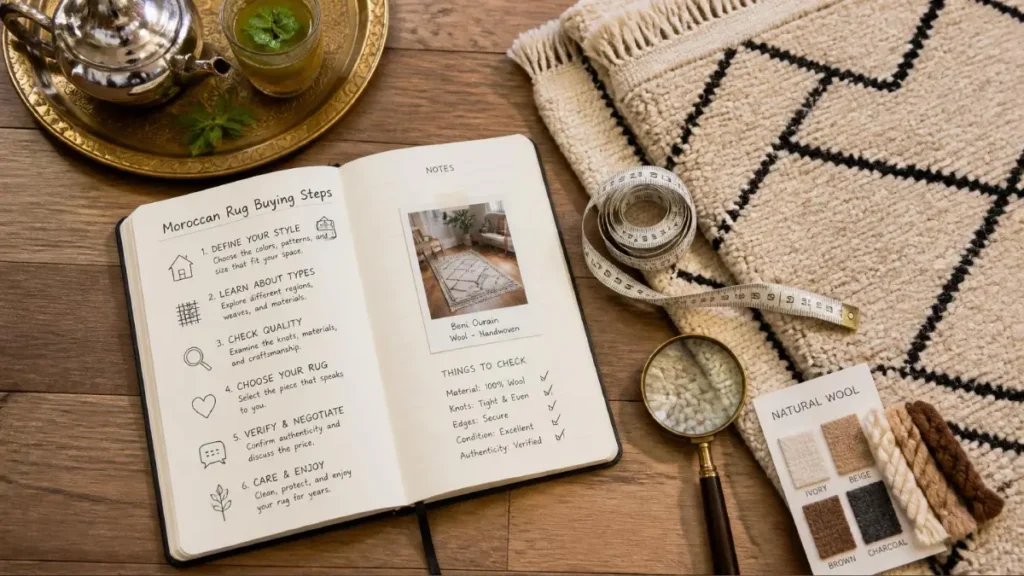 Moroccan Rug Buying Steps
1. DEFINE YOUR STYLE
Choose the colors, patterns, and
size that fit your space.
2. LEARN ABOUT TYPES
Explore different regions,
weaves, and materials.
3. CHECK QUALITY
Examine the knots, materials,
and craftsmanship.
4. CHOOSE YOUR RUG
Select the piece that speaks
to you.
5. VERIFY & NEGOTIATE
Confirm authenticity and
discuss the price.
6. CARE & ENJOY
Clean, protect, and enjoy
your rug for years.
NOTES
Beni Ourain
Wool - Handwoven
THINGS TO CHECK
Material: 100% Wool ✓
Knots: Tight & Even ✓
Edges: Secure ✓
Condition: Excellent ✓
Authenticity: Verified ✓
NATURAL WOOL
IVORY
BEIGE
BROWN
CHARCOAL